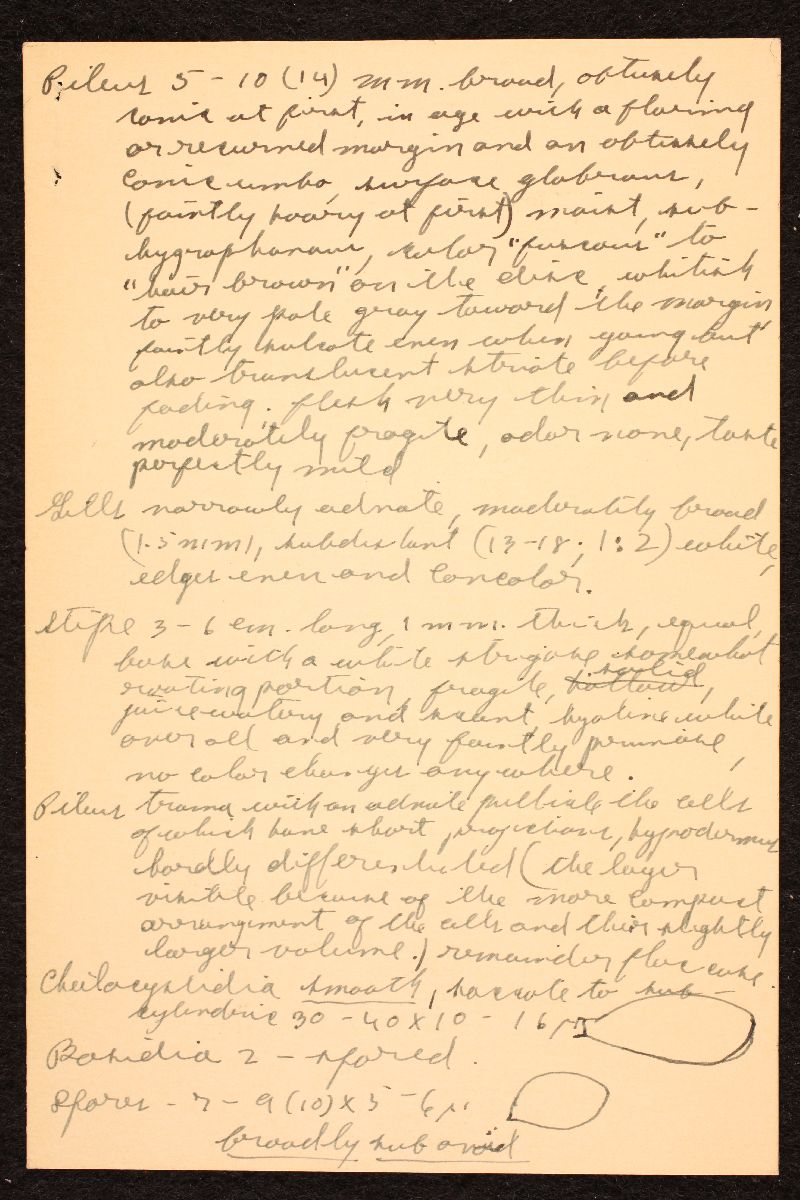 Pileus 5 - 10 (14) mm. broad, obtusely
conic at first, in age with a flaring
or recurved margin and an obtusely
conic umbo, surface glabrous,
(faintly hoary at first) moist, sub-
hygrophanous, color "fuscous" to
"hair brown" on the disc, whitish
to very pale gray toward the margin,
faintly sulcate even when young but
also translucent striate before
fading; flesh very thin and
moderately fragile, odor none, taste
perfectly mild
Gills narrowly adnate, moderately broad
(1.5 mm), subdistant (13-18; 1:2) white,
edges even and concolor.
Stipe 3 - 6 cm. long, 1 mm. thick, equal,
base with a white strigose somewhat
rooting portion, fragile, hollow, solid,
juice watery and scant, hyaline white
over all and very faintly pruinose,
no color changes anywhere.
Pileus trama with an adnate pellicle the cells
of which have short projections, hypodermis
hardly differentiated (the layer
visible because of the more compact
arrangement of the cells and their slightly
larger volume.) remainder floccose.
Cheilocystidia smooth, saccate to sub-
cylindric 30 - 40 X 10 - 16 μ
Basidia 2 - spored.
Spores - 7 - 9 (10) X 5 - 6 μ
broadly subovoid